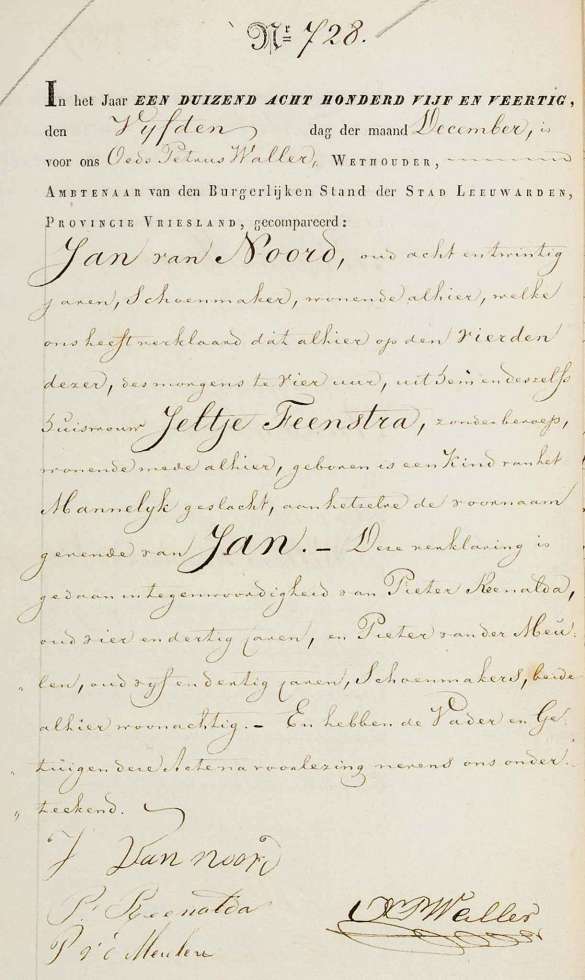 Nr 728.
In het Jaar EEN DUIZEND ACHT HONDERD VIJF EN VEERTIG,
den Vyfden dag der maand December, is
voor ons Oeds Petrus Waller, WETHOUDER,
AMBTENAAR van den Burgerlijken Stand der STAD LEEUWARDEN,
PROVINCIE VRIESLAND, gecompareerd:
Jan van Noord, oud acht en twintig
jaren, Schoenmaker, wonende alhier, welke
ons heeft verklaard dat alhier op den vierden
dezer, des morgens te vier uur, uit hem en deszelfs
huisvrouw Jeltje Feenstra, zonder beroep,
wonende mede alhier, geboren is een Kind van het
Mannelyk geslacht, aan hetzelve de voornaam
gevende van Jan. — Deze verklaring is
gedaan in tegenwoordigheid van Pieter Reenalda,
oud vier en dertig jaren, en Pieter van der Meu„
„len, oud vyf en dertig jaren, Schoenmakers, beide
alhier woonachtig. — En hebben de Vader en Ge„
„tuigen deze Acte na voorlezing nevens ons onder„
„teekend.
J Van noord
P. Reenalda
P v d Meulen
OPWaller